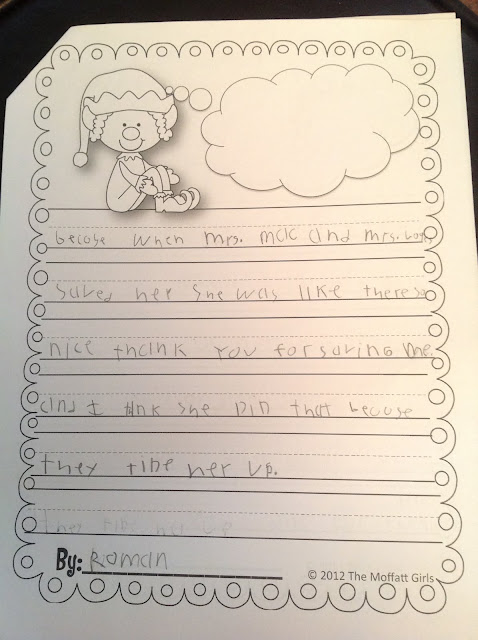 becose when mrs. mac and mrs.
saved her she was like there so
nice thank you for saving me.
and I tink she DID that becose
they tide her up.
they tide her up
By: Roman
© 2012 The Moffatt Girls